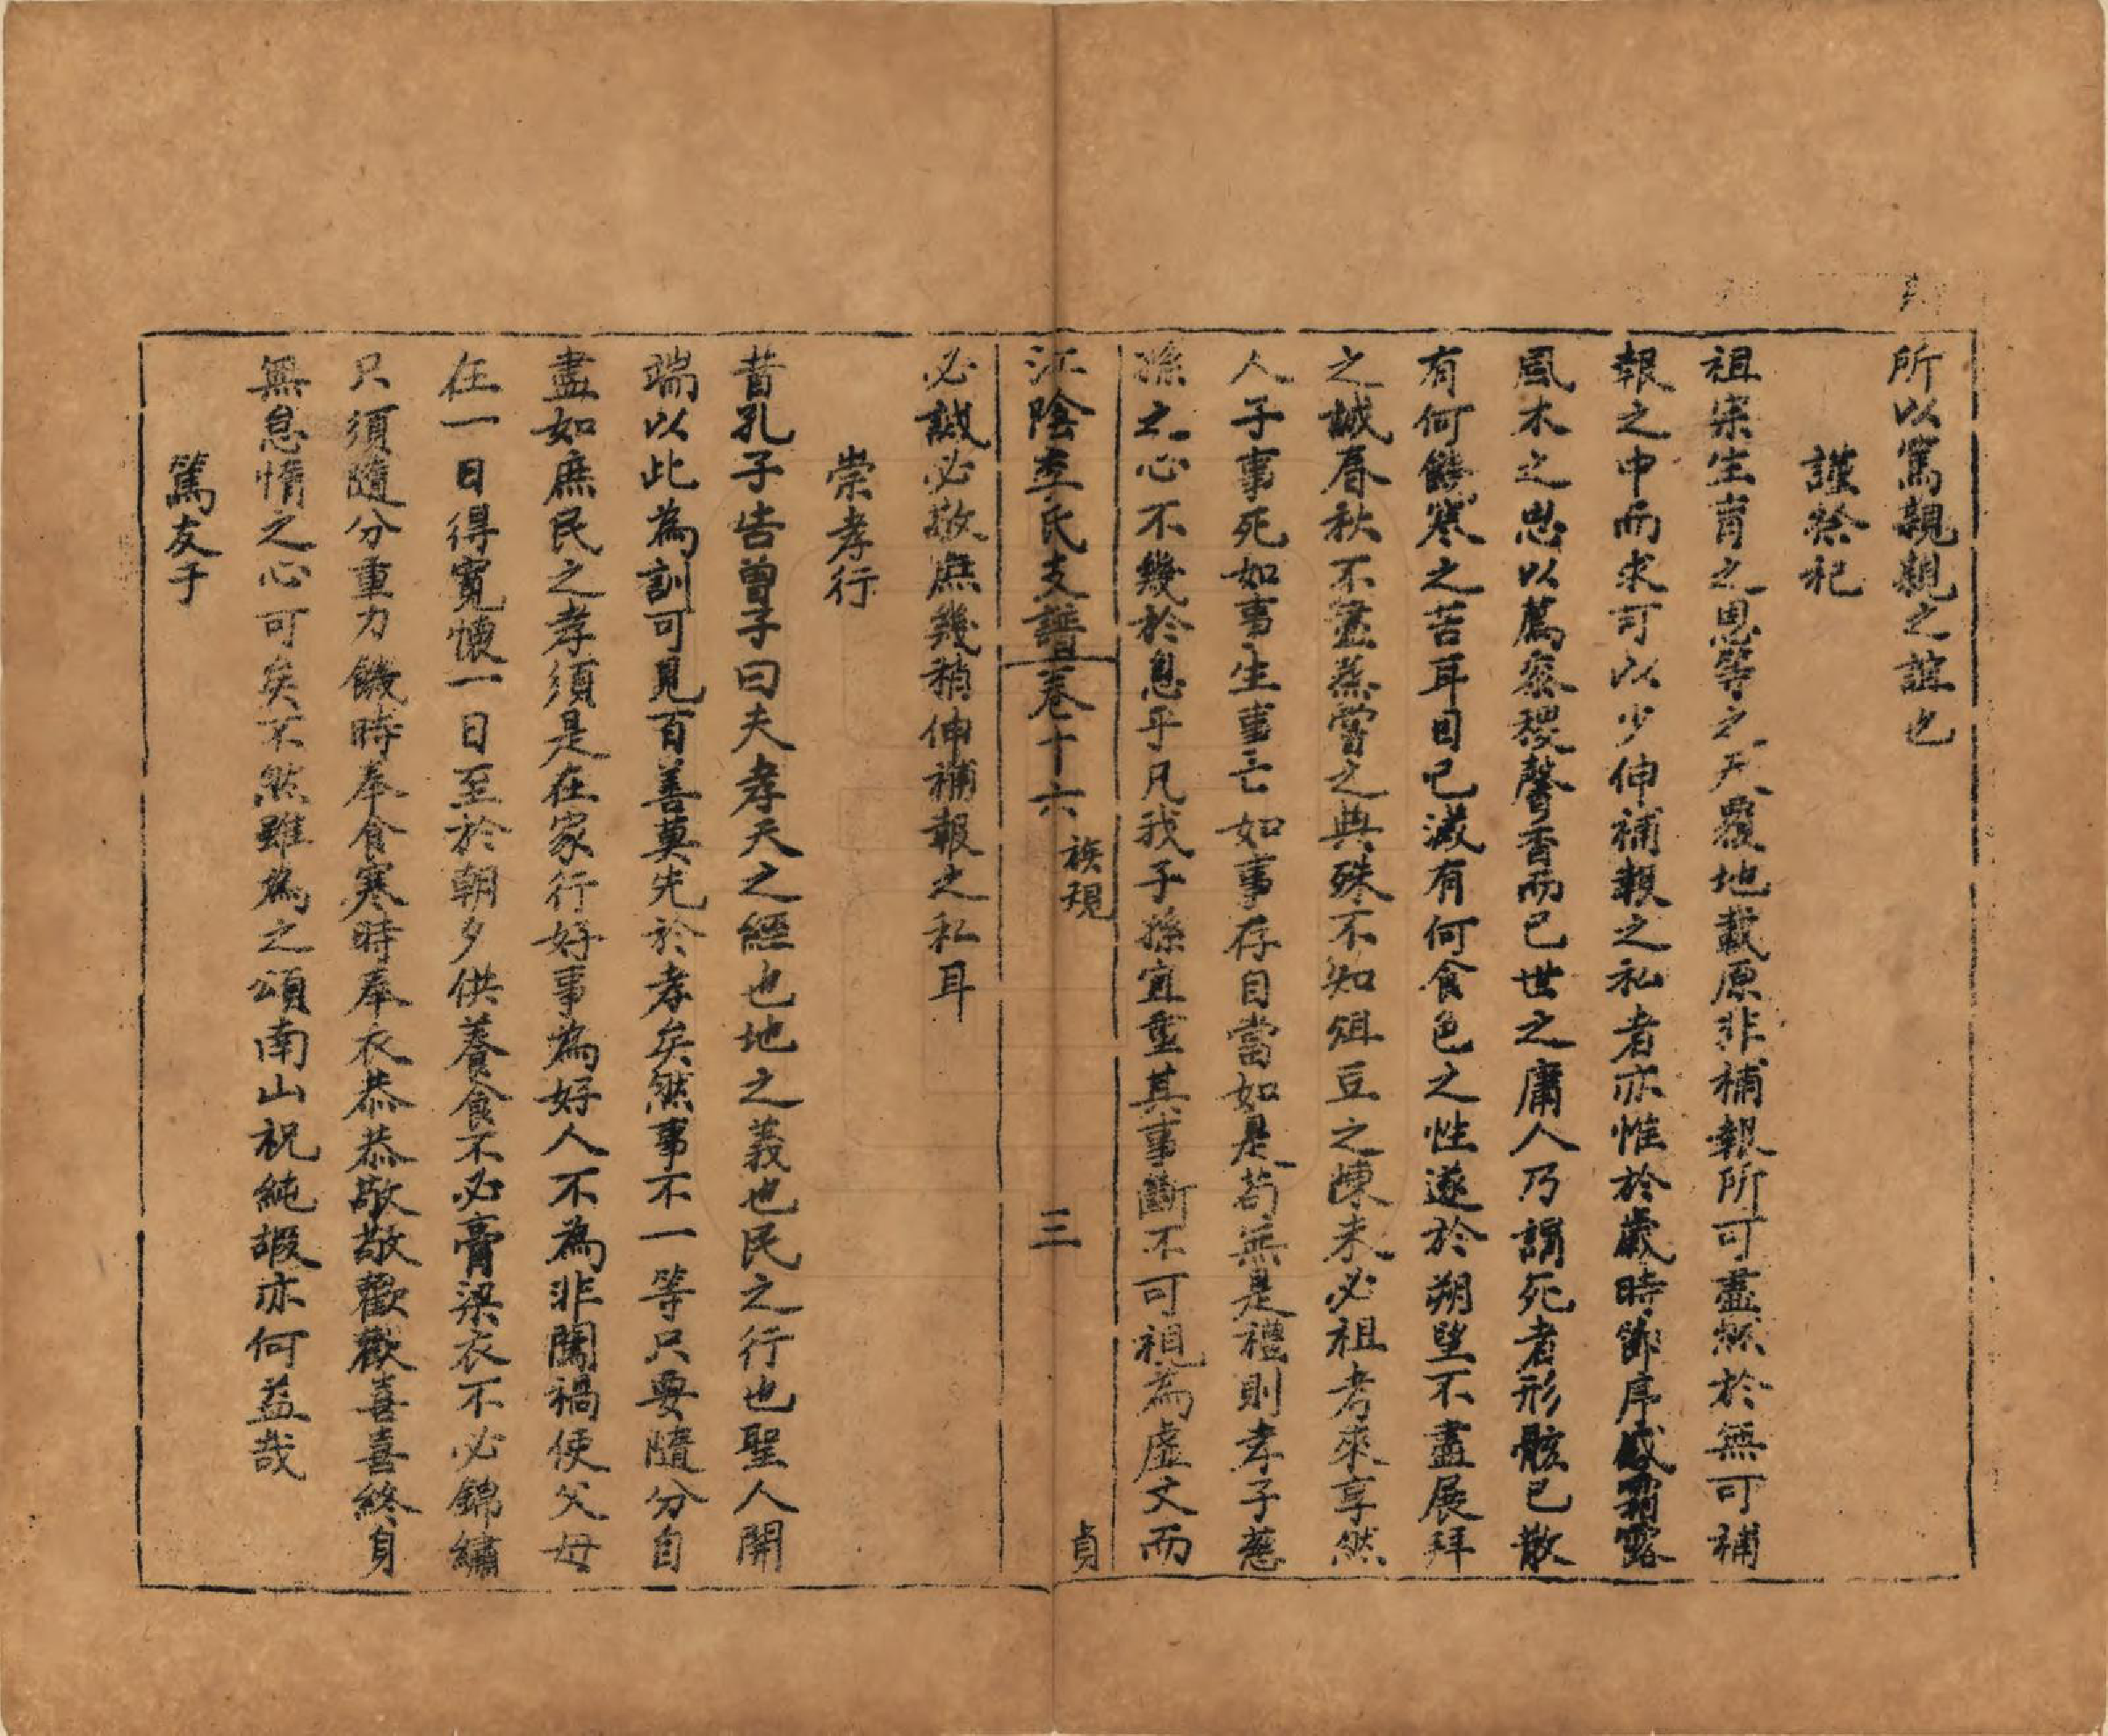 所以篤親親之誼也
謹祭祀
祖宗生育之恩等之天覆地載原非補報所可盡然於無可補
報之中而求可以少伸補報之私者亦惟於歲時節序感霜露
風木之思以薦黍稷馨香而已世之庸人乃謂死者形骸已散
有何饑寒之苦耳目已滅有何食色之性遂於朔望不盡展拜
之誠春秋不盡蒸嘗之典殊不知俎豆之陳未必祖考來享然
人子事死如事生事亡如事存自當如是苟無是禮則孝子慈
孫之心不幾於息乎凡我子孫宜重其事斷不可視為虛文而
江陰李氏支譜卷十六 族規 三 貞
必誠必敬庶幾稍伸補報之私耳
崇孝行
昔孔子告曾子曰夫孝天之經也地之義也民之行也聖人開
端以此為訓可見百善莫先於孝矣然事不一等只要隨分自
盡如庶民之孝須是在家行好事為好人不為非闖禍使父母
在一日得寬懷一日至於朝夕供養食不必膏粱衣不必錦繡
只須隨分量力饑時奉食寒時奉衣恭恭敬敬歡歡喜喜終身
無怠惰之心可矣不然雖為之頌南山祝純嘏亦何益哉
篤友于